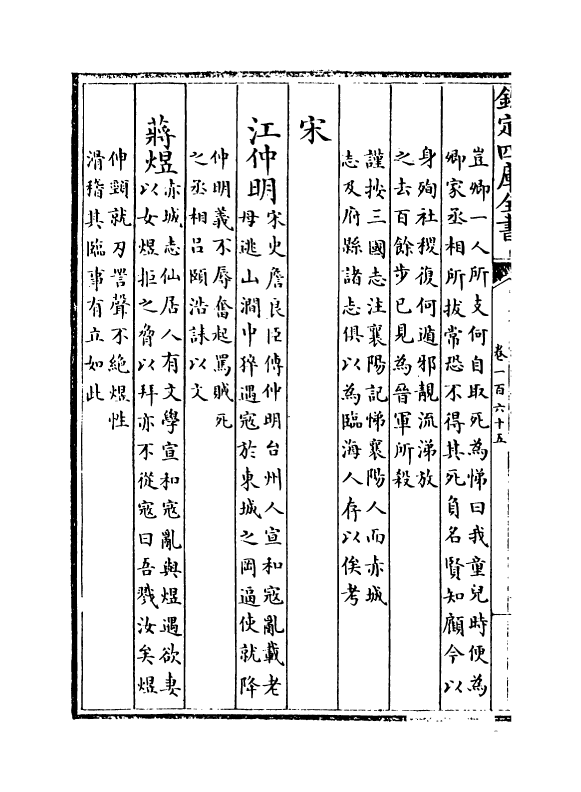 欽定四庫全書
卷一百六十五
豈卿一人所支何自取死為悌曰我童兒時便為
卿家丞相所拔常恐不得其死負名賢知顧今以
身殉社稷復何遁邪靚流涕放
之去百餘步已見為晉軍所殺
謹按三國志注襄陽記悌襄陽人而赤城
志及府縣諸志俱以為臨海人存以俟考
宋
江仲明宋史詹良臣傳仲明台州人宣和寇亂載老
母逃山澗中猝遇寇於東城之岡逼使就降
仲明義不辱奮起罵賊死
之丞相吕頤浩誄以文
蔣煜赤城志仙居人有文學宣和寇亂與煜遇欲妻
以女煜拒之脅以拜亦不從寇曰吾戮汝矣煜
伸頸就刃詈聲不絶煜性
滑稽其臨事有立如此